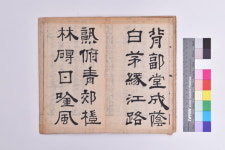 背郭堂成蔭
白茅緣江路
熟俯青郊榿
林碍日吟風